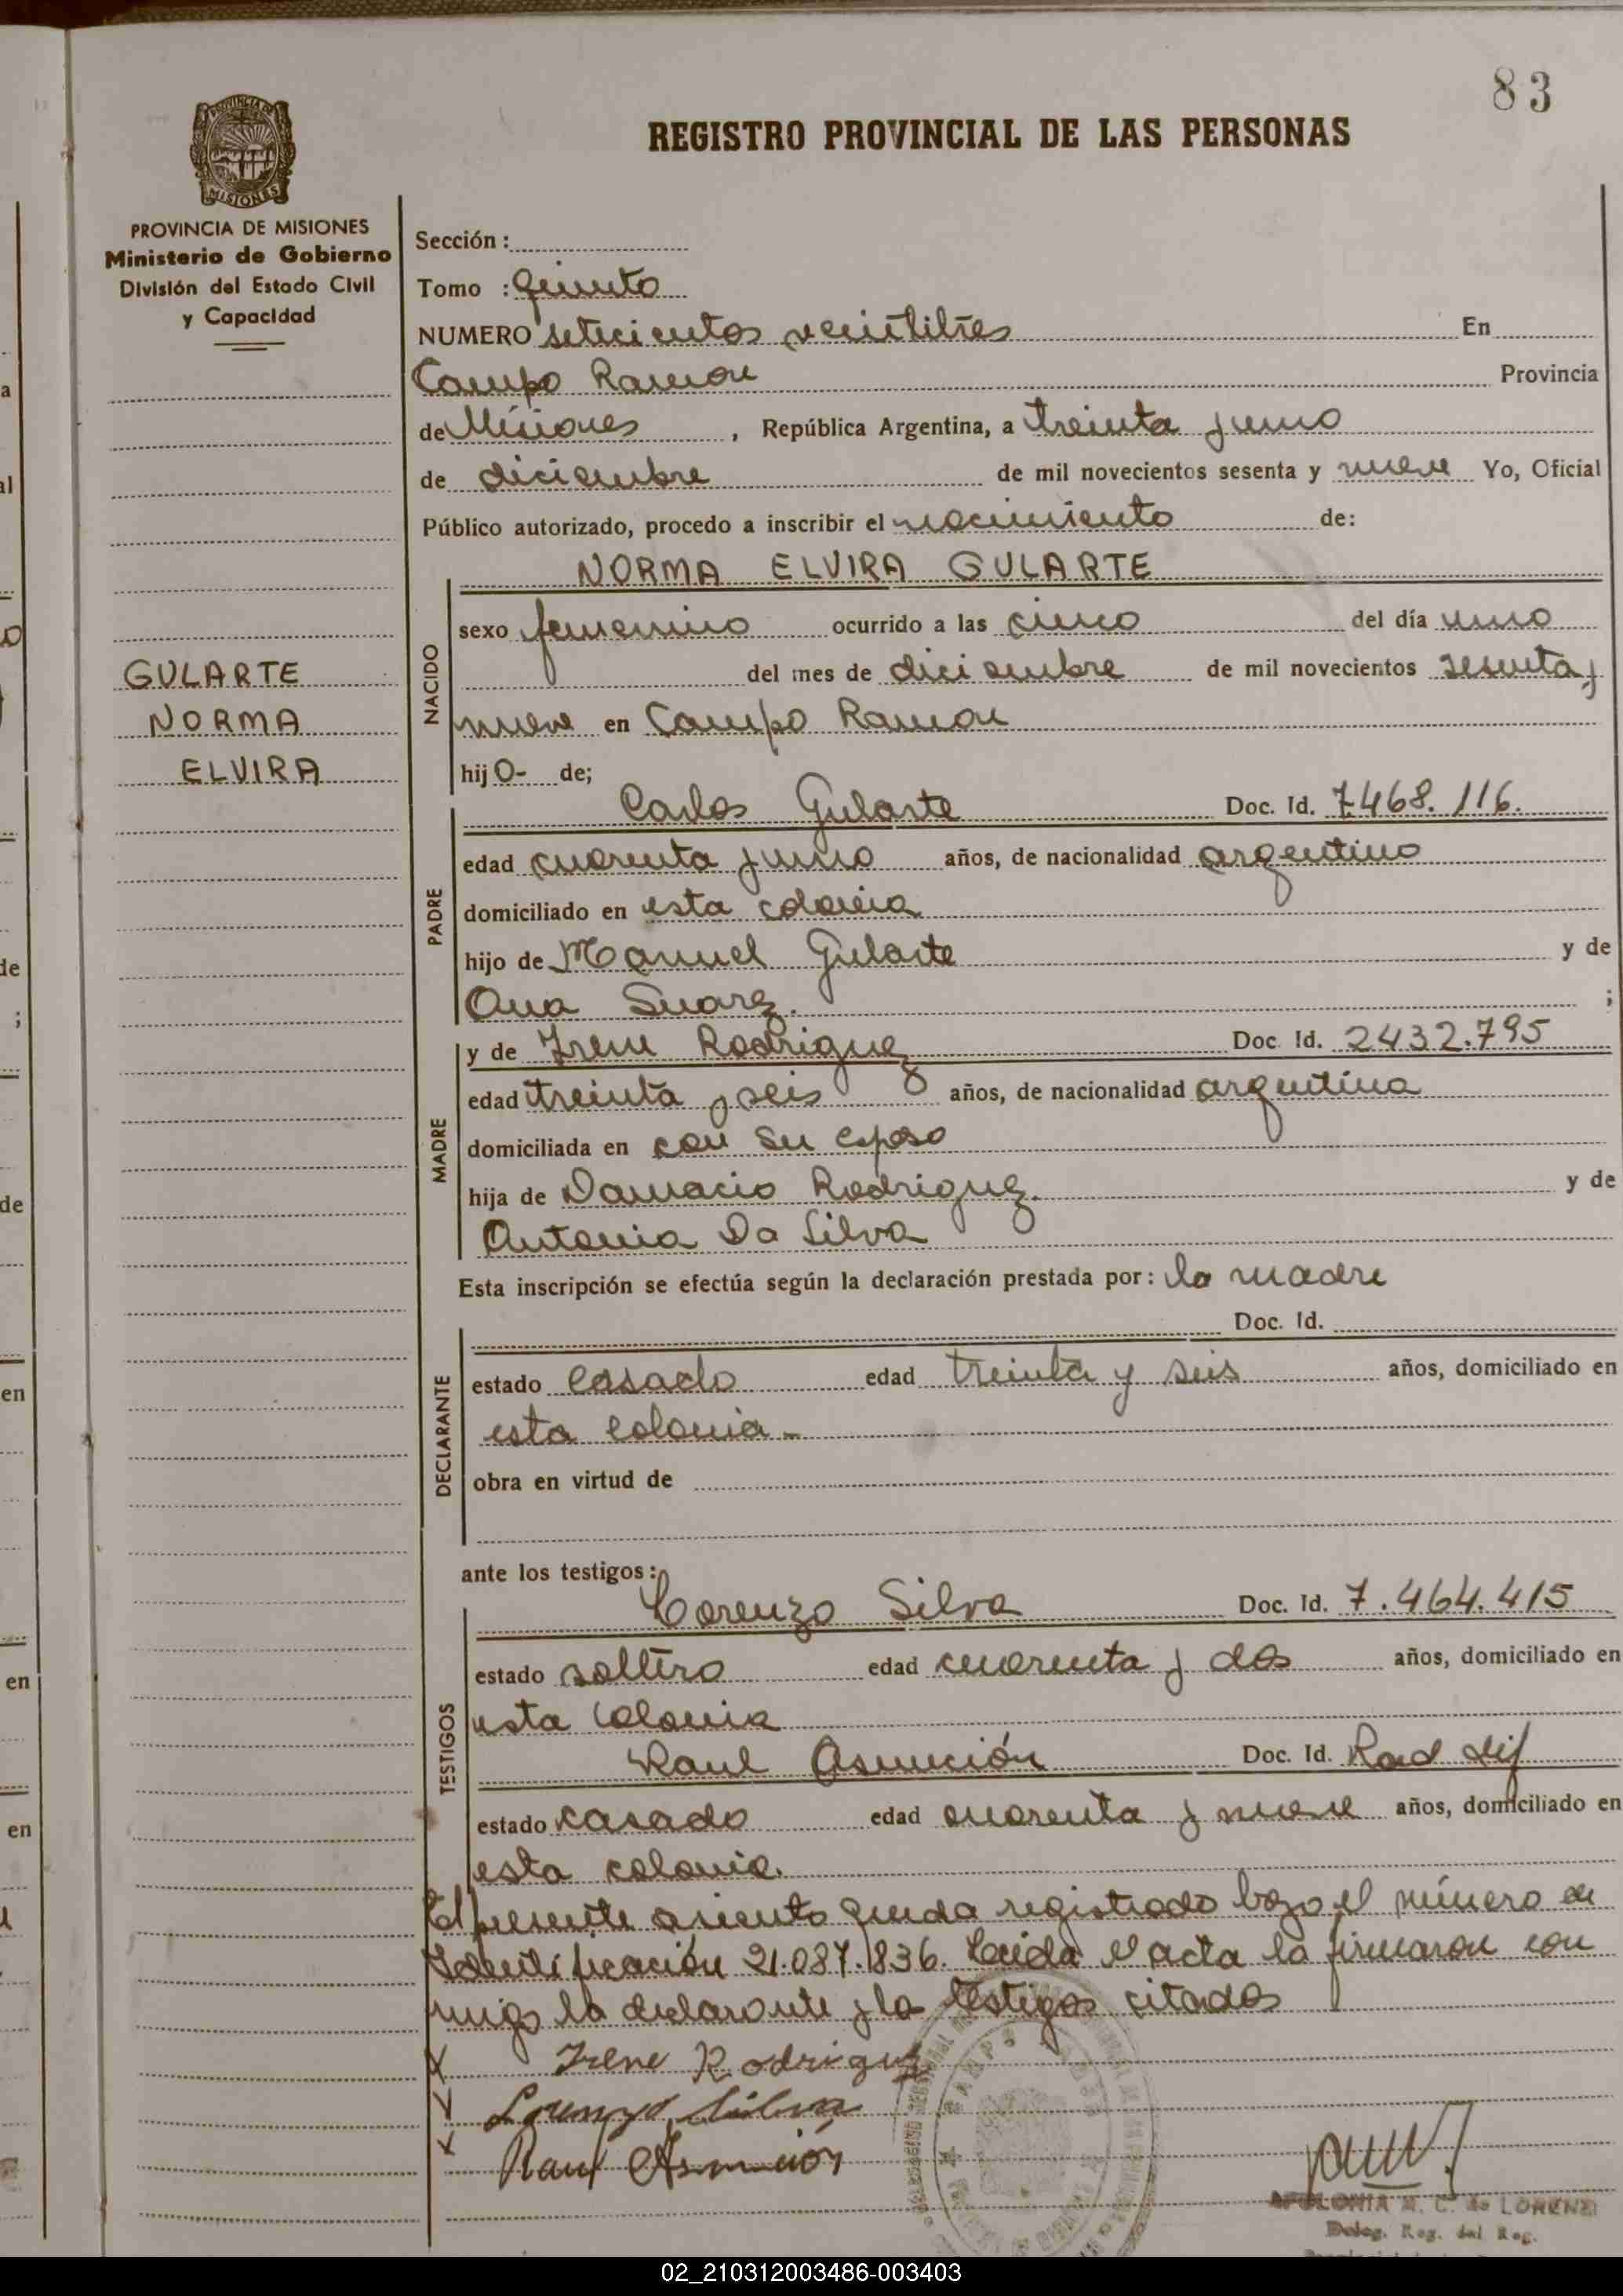 83
REGISTRO PROVINCIAL DE LAS PERSONAS
PROVINCIA DE MISIONES
Ministerio de Gobierno
División del Estado Civil
y Capacidad
Sección :
Tomo : Quinto
NUMERO setecientos veintitres En
Campo Ramon Provincia
de Misiones , República Argentina, a treinta y uno
de diciembre de mil novecientos sesenta y nueve Yo, Oficial
Público autorizado, procedo a inscribir el nacimiento de:
NORMA ELVIRA GULARTE
GULARTE
NORMA
ELVIRA
NACIDO
sexo femenino ocurrido a las cinco del día uno
del mes de diciembre de mil novecientos sesenta y
nueve en Campo Ramon
hij o- de;
PADRE
Carlos Gularte Doc. Id. 7468.116.
edad cuarenta y uno años, de nacionalidad argentino
domiciliado en esta colonia
hijo de Manuel Gularte y de
Ana Suarez. ;
MADRE
y de Irene Rodriguez Doc. Id. 2432.795
edad treinta y seis años, de nacionalidad argentina
domiciliada en con su esposo
hija de Damacio Rodriguez. y de
Antonia Da Silva
Esta inscripción se efectúa según la declaración prestada por: la madre
DECLARANTE
Doc. Id.
estado casado edad treinta y seis años, domiciliado en
esta colonia -
obra en virtud de
ante los testigos:
TESTIGOS
Lorenzo Silva Doc. Id. 7.464.415
estado soltero edad cuarenta y dos años, domiciliado en
esta colonia
Raul Asunción Doc. Id.
estado casado edad cuarenta y nueve años, domiciliado en
esta colonia.
El presente asiento queda registrado bajo el número de
Identificación 21.087.836. Leida el acta la firmaron con
migo la declarante y los testigos citados
Irene Rodriguez
Lorenzo Silva
Raul Asunción
APOLONIA M. C. de LORENZI
Deleg. Reg. del Reg.
02_210312003486-003403